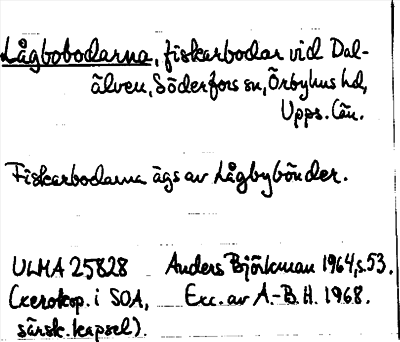 Lågbobodarna, fiskarbodar vid Dal-
älven, Söderfors sn, Örbyhus hd,
Upps. län.
Fiskarbodarna ägs av Lågbybönder.
ULMA 25828 Anders Björkman 1964, s. 53.
(xerokop. i SOA, Exc. av A.-B. H. 1968.
särsk. kapsel).